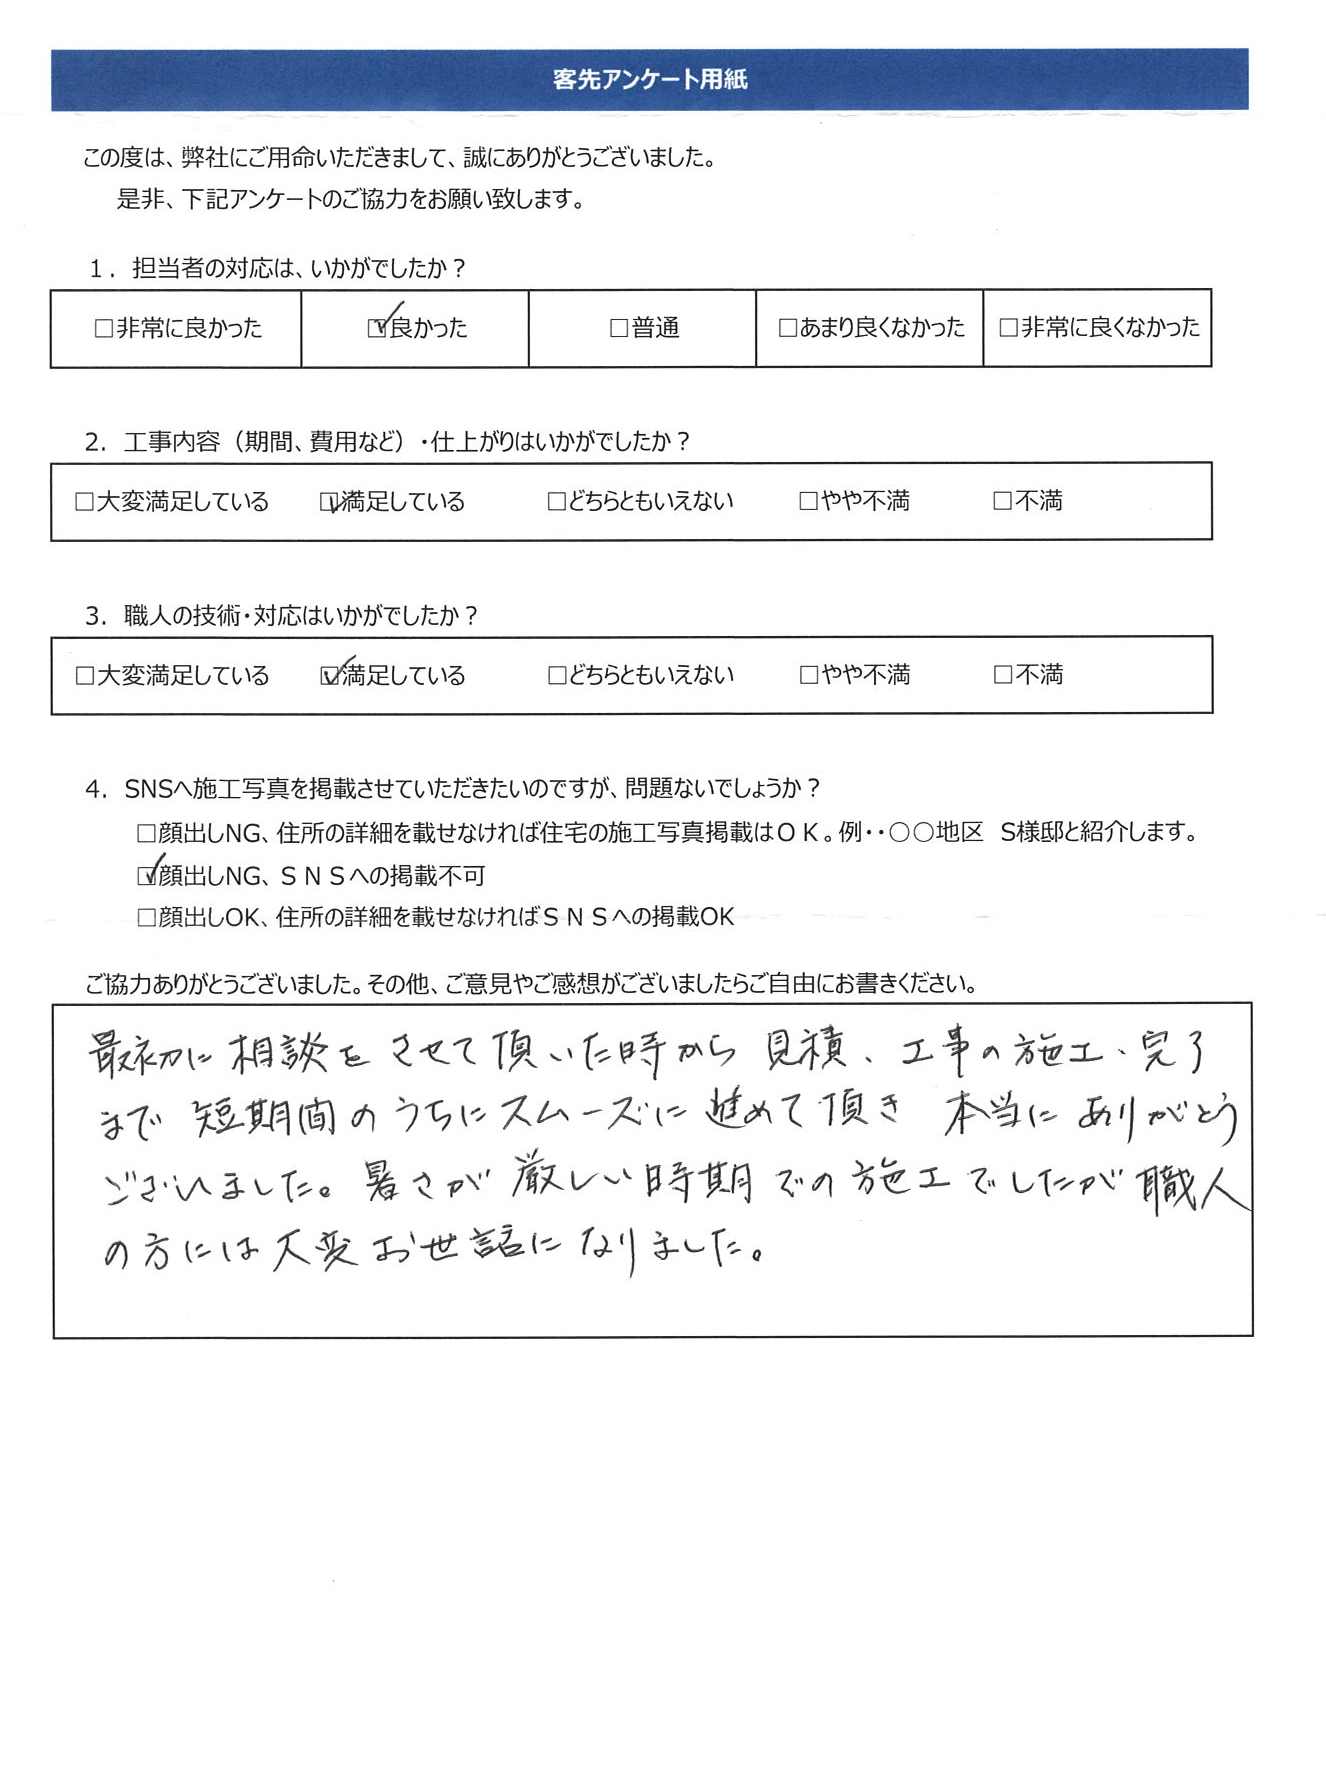 客先アンケート用紙
この度は、弊社にご用命いただきまして、誠にありがとうございました。
是非、下記アンケートのご協力をお願い致します。
１．担当者の対応は、いかがでしたか？
□非常に良かった ☑良かった □普通 □あまり良くなかった □非常に良くなかった
2．工事内容（期間、費用など）・仕上がりはいかがでしたか？
□大変満足している ☑満足している □どちらともいえない □やや不満 □不満
3．職人の技術・対応はいかがでしたか？
□大変満足している ☑満足している □どちらともいえない □やや不満 □不満
4．SNSへ施工写真を掲載させていただきたいのですが、問題ないでしょうか？
□顔出しNG、住所の詳細を載せなければ住宅の施工写真掲載はＯＫ。例・・〇〇地区 S様邸と紹介します。
☑顔出しNG、ＳＮＳへの掲載不可
□顔出しOK、住所の詳細を載せなければＳＮＳへの掲載OK
ご協力ありがとうございました。その他、ご意見やご感想がございましたらご自由にお書きください。
最初に相談をさせて頂いた時から見積、工事の施工、完了
まで短期間のうちにスムーズに進めて頂き 本当にありがとう
ございました。暑さが厳しい時期での施工でしたが職人
の方には大変お世話になりました。